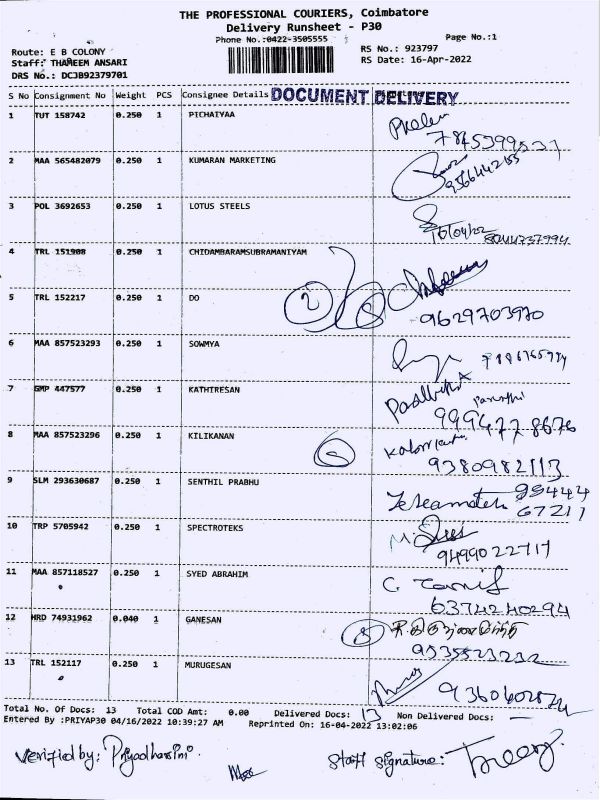 THE PROFESSIONAL COURIERS, Coimbatore
Delivery Runsheet - P30
Phone No.:0422-3505555
Page No.:1
Route: E B COLONY
RS No.: 923797
Staff: THAREEM ANSARI
RS Date: 16-Apr-2022
DRS No.: DCJB92379701
S No Consignment No Weight PCS Consignee Details DOCUMENT DELIVERY
1 TUT 158742 0.250 1 PICHAIYAA
2 MAA 565482079 0.250 1 KUMARAN MARKETING
3 POL 3692653 0.250 1 LOTUS STEELS
4 TRL 151908 0.250 1 CHIDAMBARAMSUBRAMANIYAM
5 TRL 152217 0.250 1 DO 2
9629703970
6 MAA 857523293 0.250 1 SOWMYA
7 GMP 447577 0.250 1 KATHIRESAN
9994778676
8 MAA 857523296 0.250 1 KILIKANAN
9380982113
9 SLM 293630687 0.250 1 SENTHIL PRABHU 95444
67211
10 TRP 5705942 0.250 1 SPECTROTEKS
9499022717
11 MAA 857118527 0.250 1 SYED ABRAHIM
6374240294
12 HRD 74931962 0.040 1 GANESAN
9535523232
13 TRL 152117 0.250 1 MURUGESAN
Total No. Of Docs: 13 Total COD Amt: 0.00 Delivered Docs: 13 Non Delivered Docs: —
Entered By :PRIYAP30 04/16/2022 10:39:27 AM Reprinted On: 16-04-2022 13:02:06
Verified by: Priyadharsini. Staff Signature: